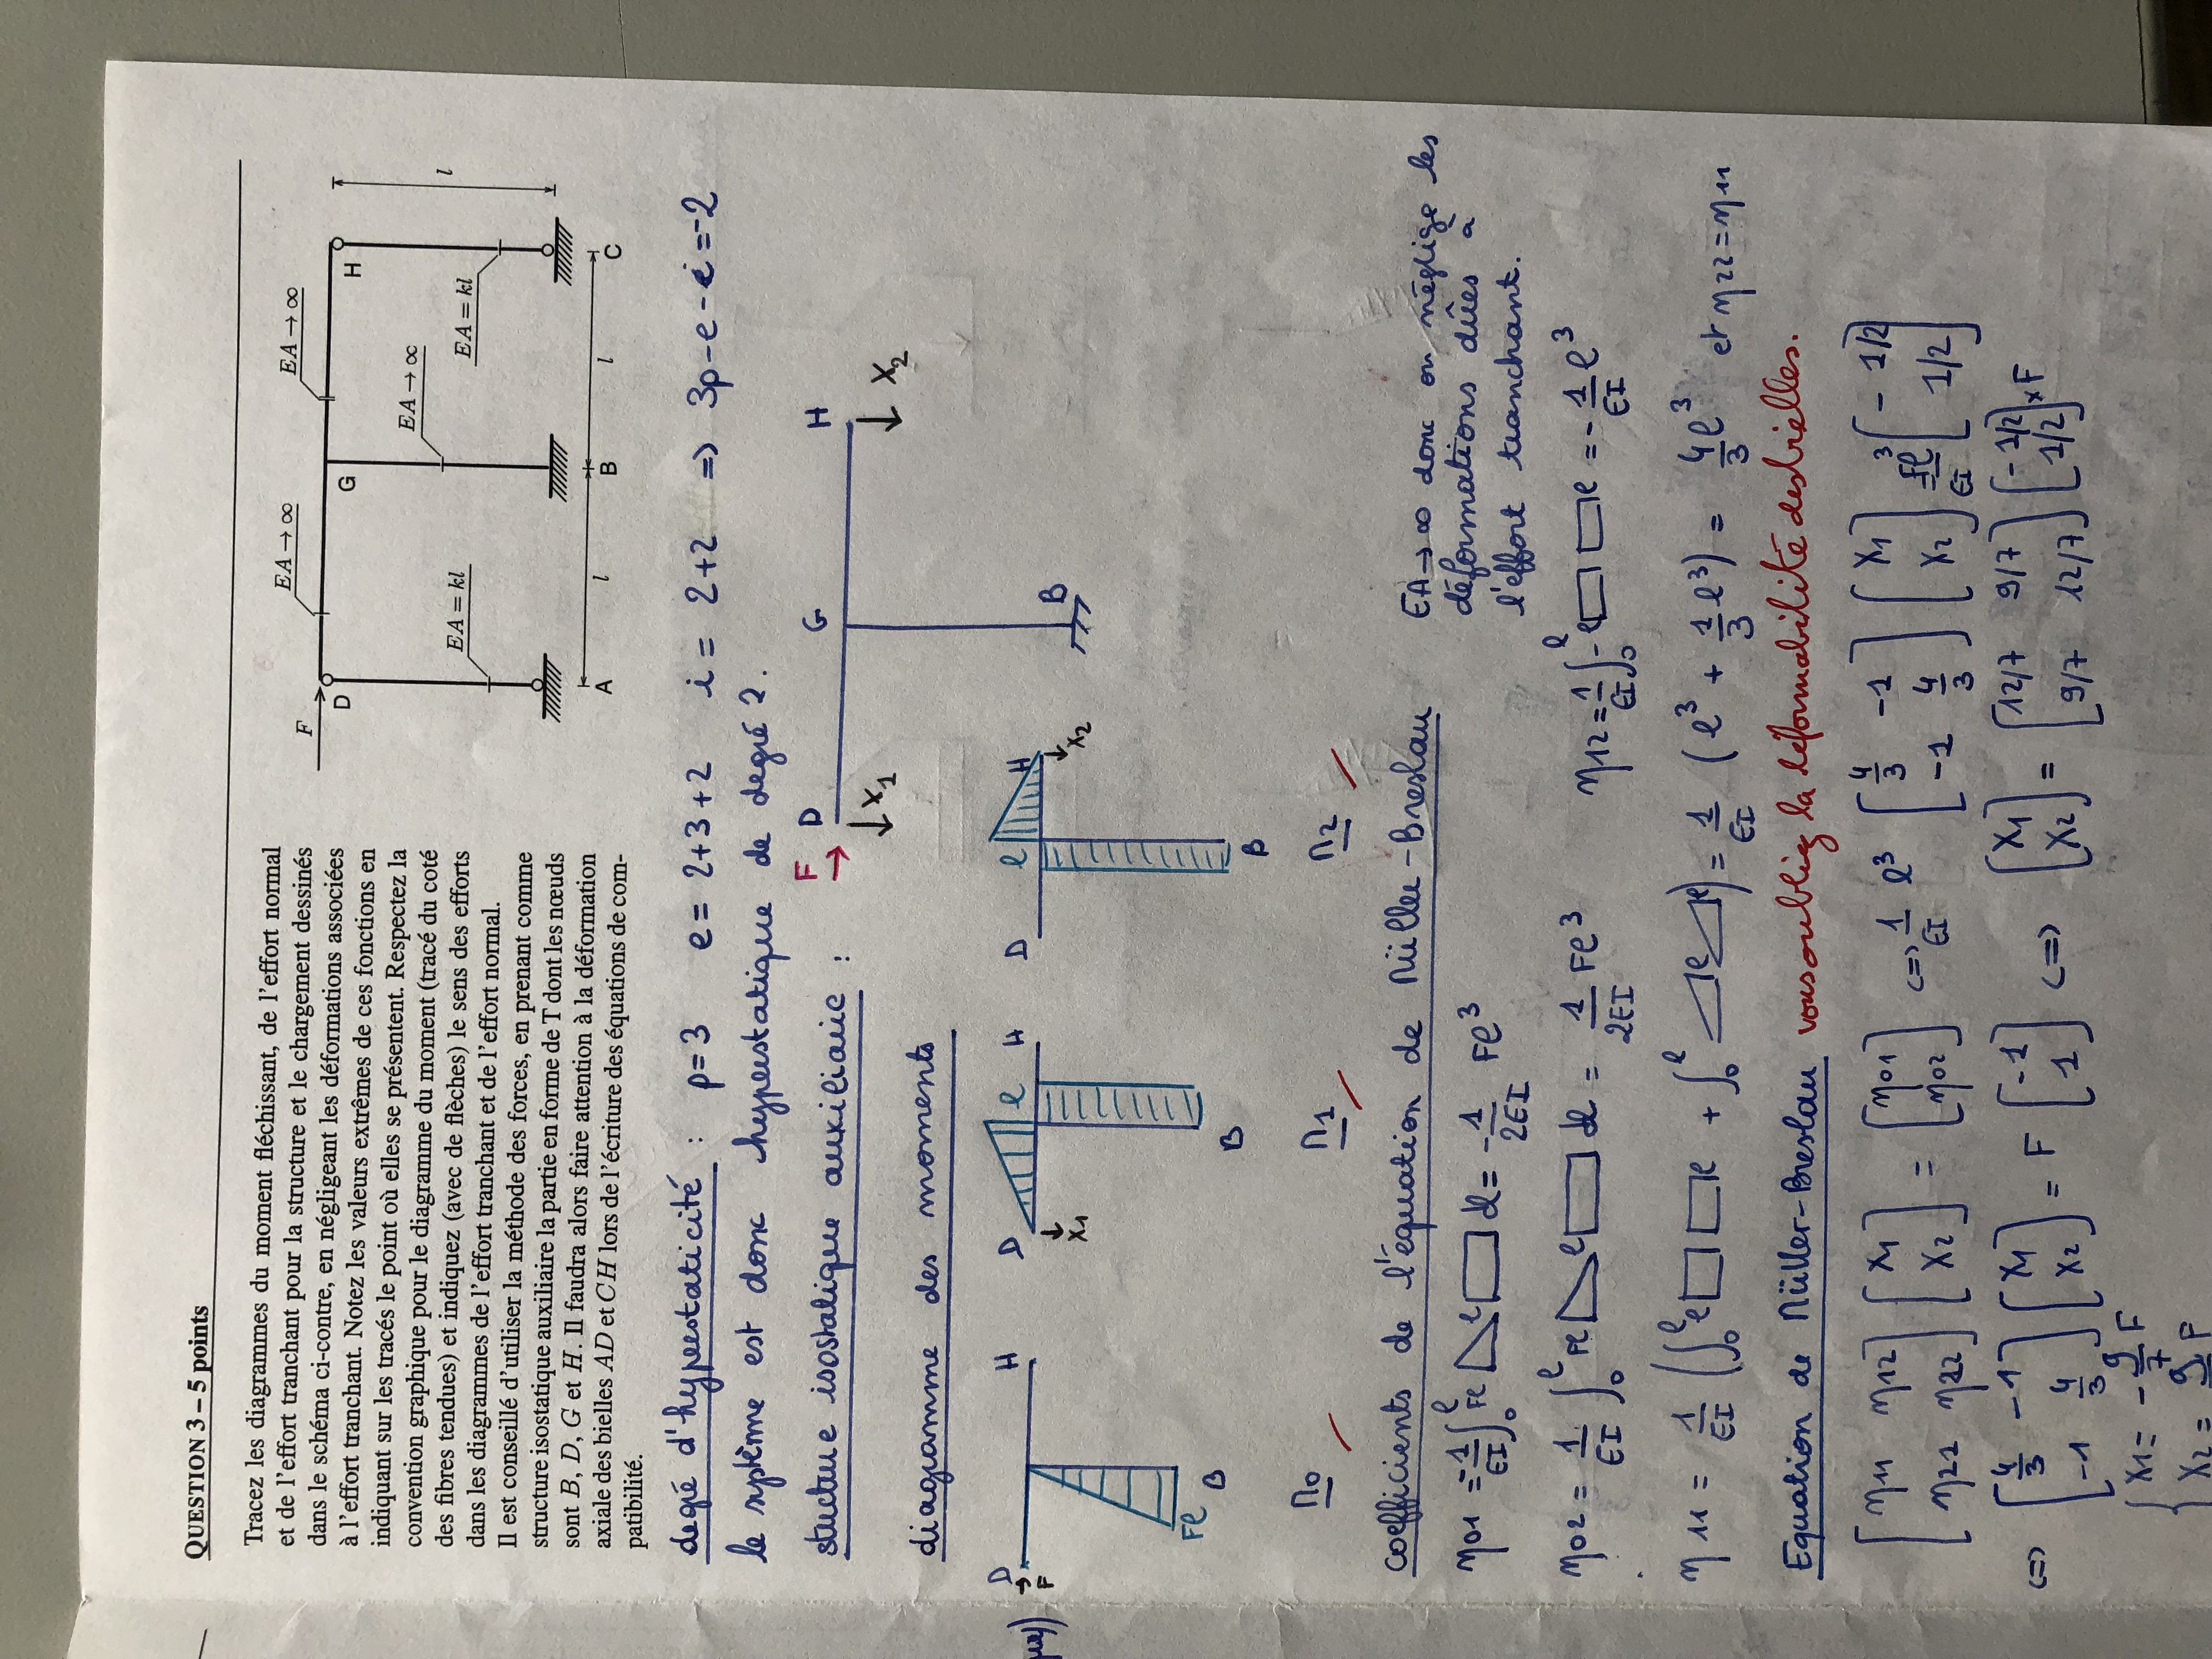 QUESTION 3 – 5 points
Tracez les diagrammes du moment fléchissant, de l'effort normal
et de l'effort tranchant pour la structure et le chargement dessinés
dans le schéma ci-contre, en négligeant les déformations associées
à l'effort tranchant. Notez les valeurs extrêmes de ces fonctions en
indiquant sur les tracés le point où elles se présentent. Respectez la
convention graphique pour le diagramme du moment (tracé du coté
des fibres tendues) et indiquez (avec de flèches) le sens des efforts
dans les diagrammes de l'effort tranchant et de l'effort normal.
Il est conseillé d'utiliser la méthode des forces, en prenant comme
structure isostatique auxiliaire la partie en forme de T dont les nœuds
sont B, D, G et H. Il faudra alors faire attention à la déformation
axiale des bielles AD et CH lors de l'écriture des équations de com-
patibilité.
F
EA → ∞
EA → ∞
D
G
H
EA → ∞
EA = kl
EA = kl
l
l
l
A
B
C
degré d'hyperstaticité : p=3 e= 2+3+2 i= 2+2 => 3p-e-i=-2
le système est donc hyperstatique de degré 2.
structure isostatique auxiliaire :
F
D
G
H
X1
X2
B
diagramme des moments
D
H
F
Fl
B
M0
D
l
H
X1
B
M1
D
l
H
X2
B
M2
coefficients de l'équation de Müller-Breslau
EA→∞ donc on néglige les
déformations dûes à
l'effort tranchant.
η01 = -1/EI ∫0^l Fl l dl = -1/2EI Fl³
η12 = 1/EI ∫0^l -l l = -1/EI l³
η02 = 1/EI ∫0^l Fl l dl = 1/2EI Fl³
η11 = 1/EI (∫0^l l l + ∫0^l l l) = 1/EI (l³ + 1/3 l³) = 4/3 l³ et η22 = η11
Equation de Müller-Breslau vous oubliez la déformabilité des bielles.
[η11 η12 η21 η22] [X1 X2] = [η01 η02] <=> 1/EI l³ [4/3 -1 -1 4/3] [X1 X2] = Fl³/EI [-1/2 1/2]
<=> [4/3 -1 -1 4/3] [X1 X2] = F [-1 1] <=> [X1 X2] = [12/7 9/7 9/7 12/7] [-1/2 1/2] × F
X1 = -9/7 F
X2 =